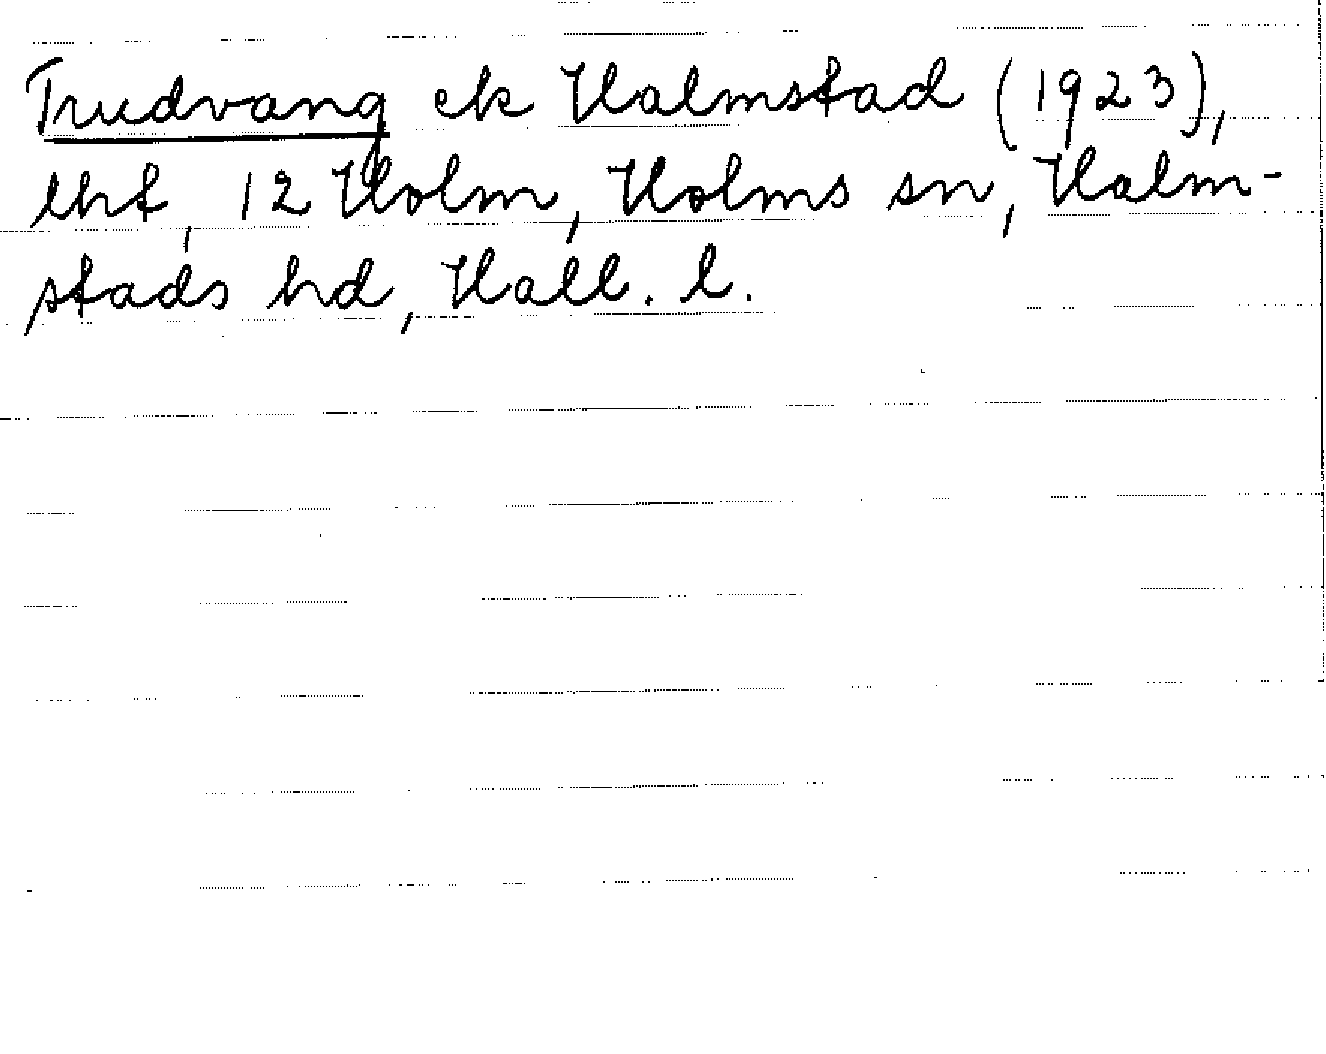 Trudvang ek Halmstad (1923),
lht, 12 Holm, Holms sn, Halm-
stads hd, Hall. l.